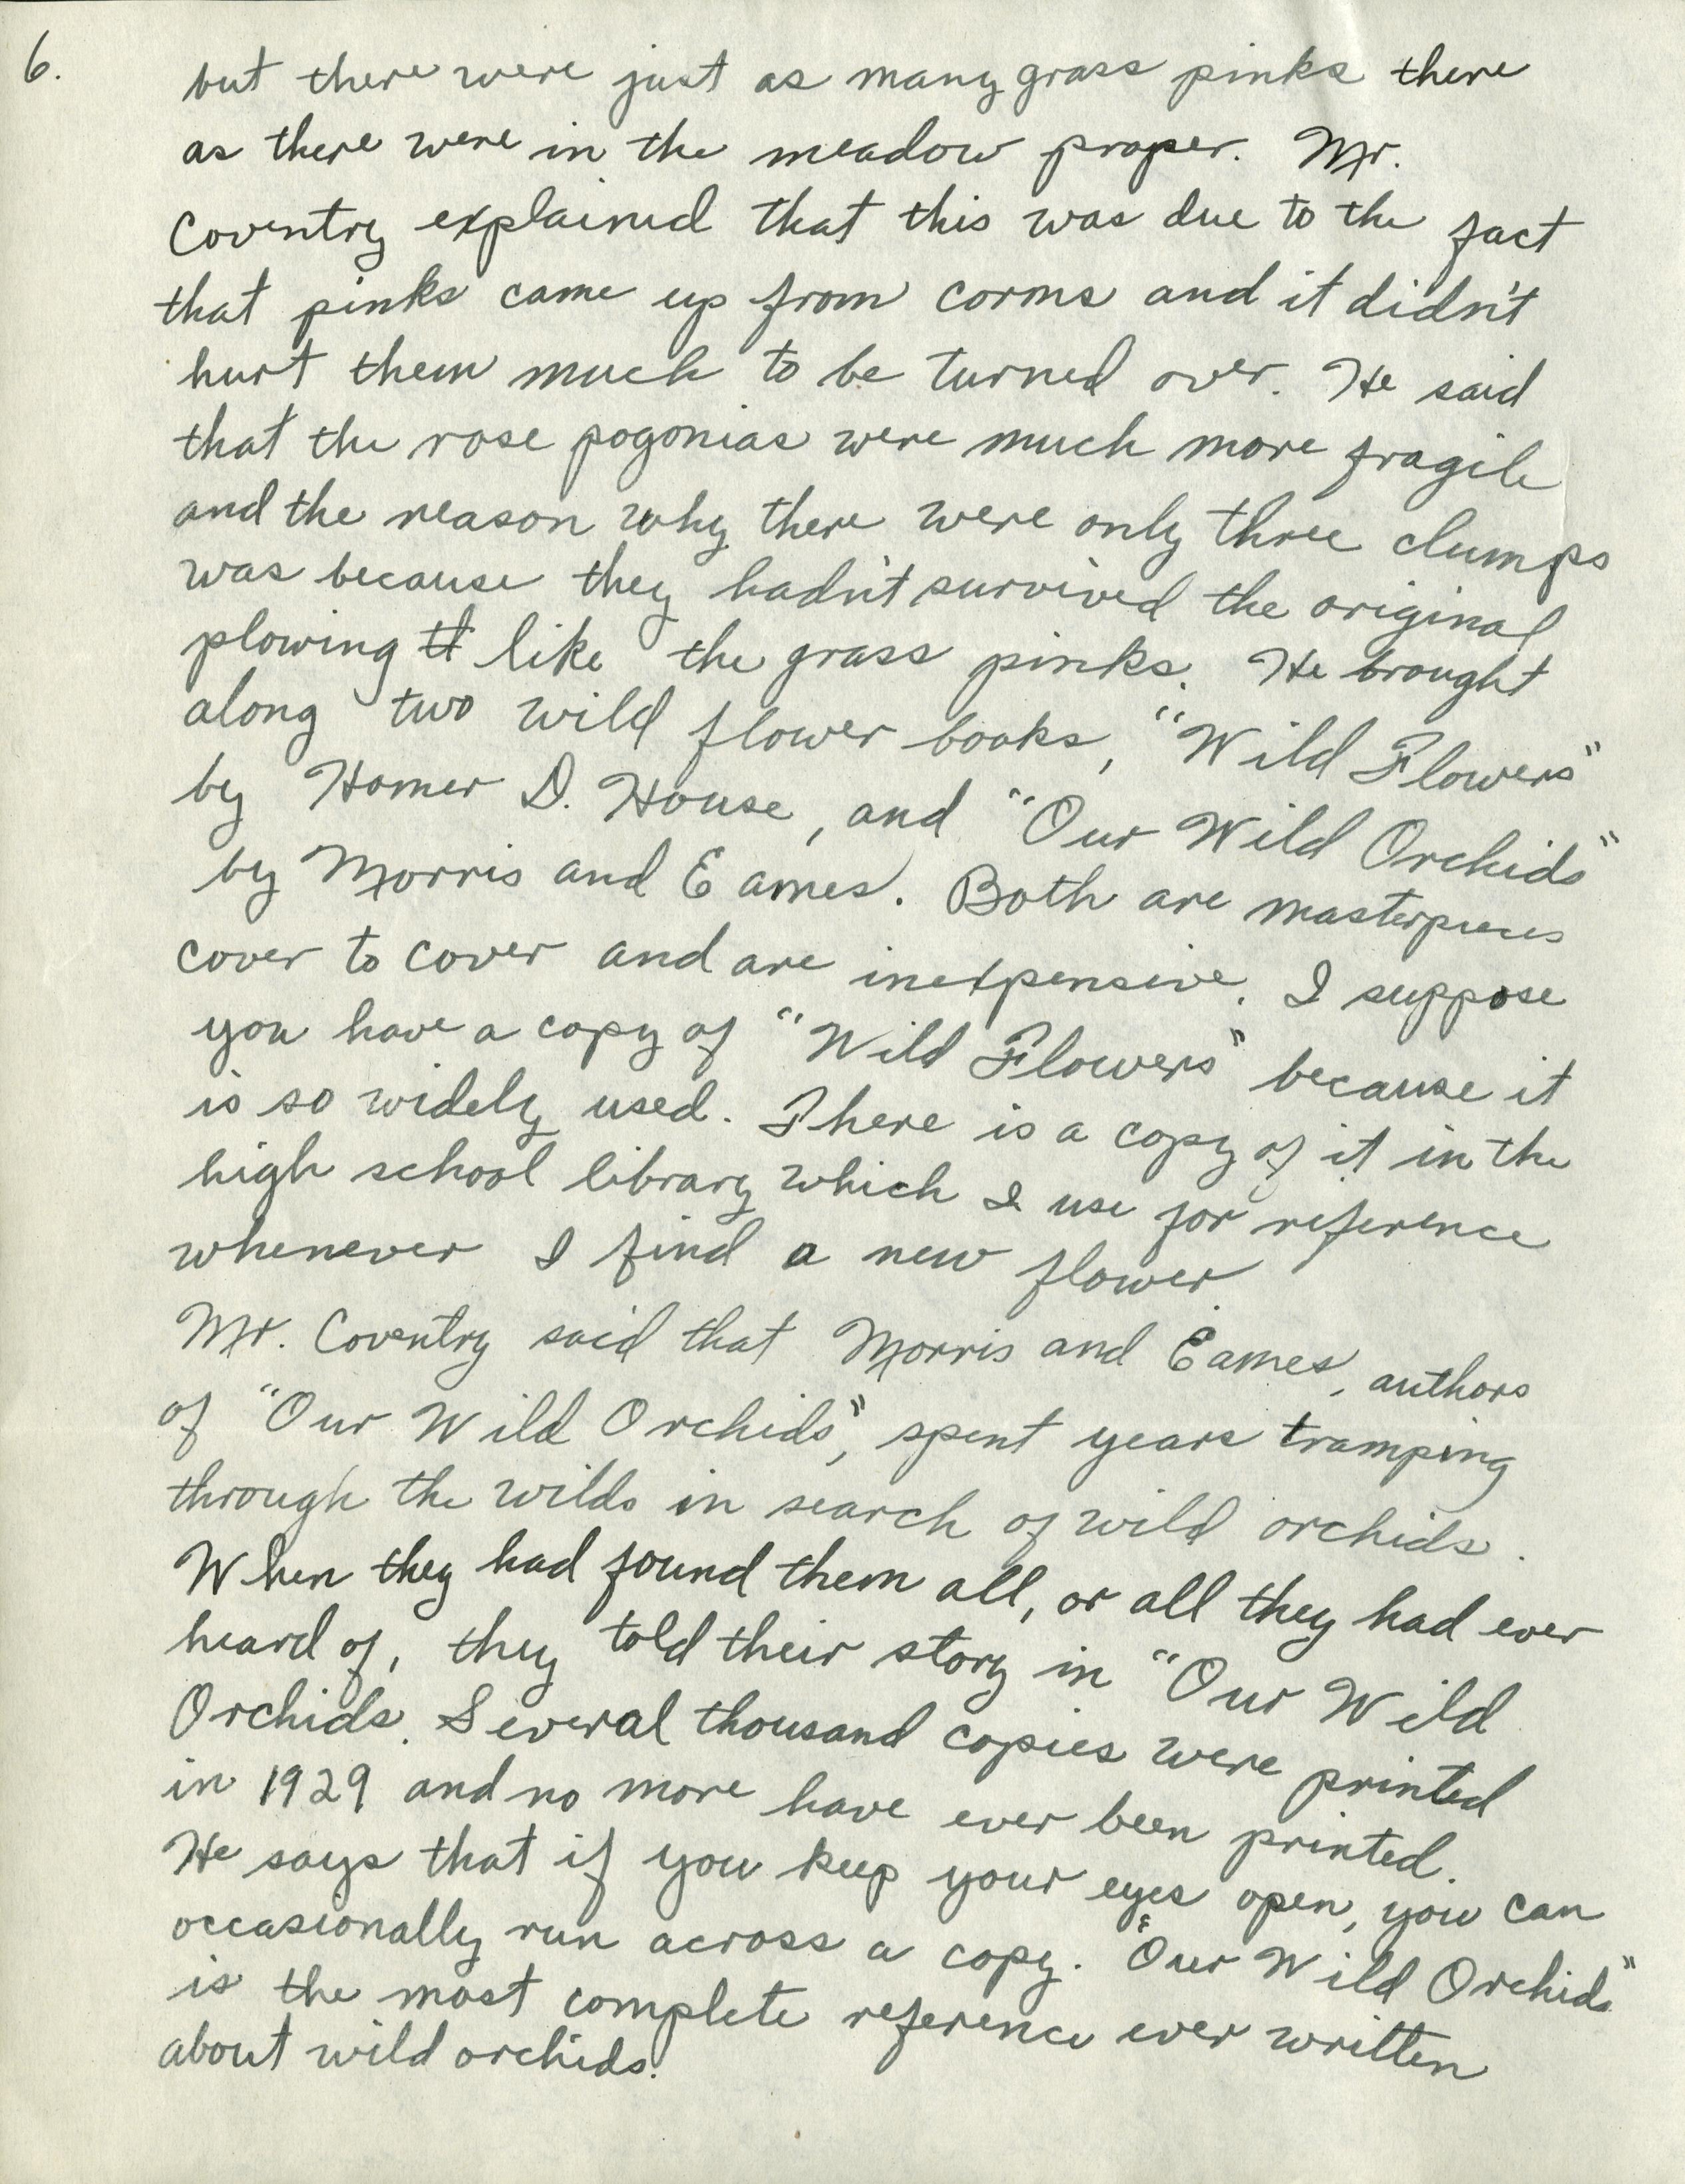 6.
but there were just as many grass pinks there
as there were in the meadow proper. Mr.
Coventry explained that this was due to the fact
that pinks came up from corms and it didn't
hurt them much to be turned over. He said
that the rose pogonias were much more fragile
and the reason why there were only three clumps
was because they hadn't survived the original
plowing like the grass pinks. He brought
along two wild flower books, "Wild Flowers"
by Homer D. House, and "Our Wild Orchids"
by Morris and Eames. Both are masterpieces
cover to cover and are inexpensive. I suppose
you have a copy of "Wild Flowers" because it
is so widely used. There is a copy of it in the
high school library which I use for reference
whenever I find a new flower.
Mr. Coventry said that Morris and Eames, authors
of "Our Wild Orchids", spent years tramping
through the wilds in search of wild orchids.
When they had found them all, or all they had ever
heard of, they told their story in "Our Wild
Orchids. Several thousand copies were printed
in 1929 and no more have ever been printed.
He says that if you keep your eyes open, you can
occasionally run across a copy. "Our Wild Orchids"
is the most complete reference ever written
about wild orchids.